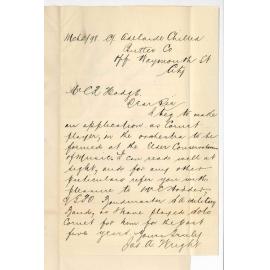 Mch 21/98 C/o Adelaide Chilled
Butter Co
Off Waymouth St
City
Mr C E Hodge
Dear Sir
I beg to make
an application as Cornet
player, in the orchestra to be
formed at the Elder Conservatorium
of Music, I can read well at
sight, and for any other
particulars refer you with
pleasure to Mr
Bandmaster S A Military
Band, as I have played Solo
Cornet for him for the past
five years
Yours Truly
Jas A Wright